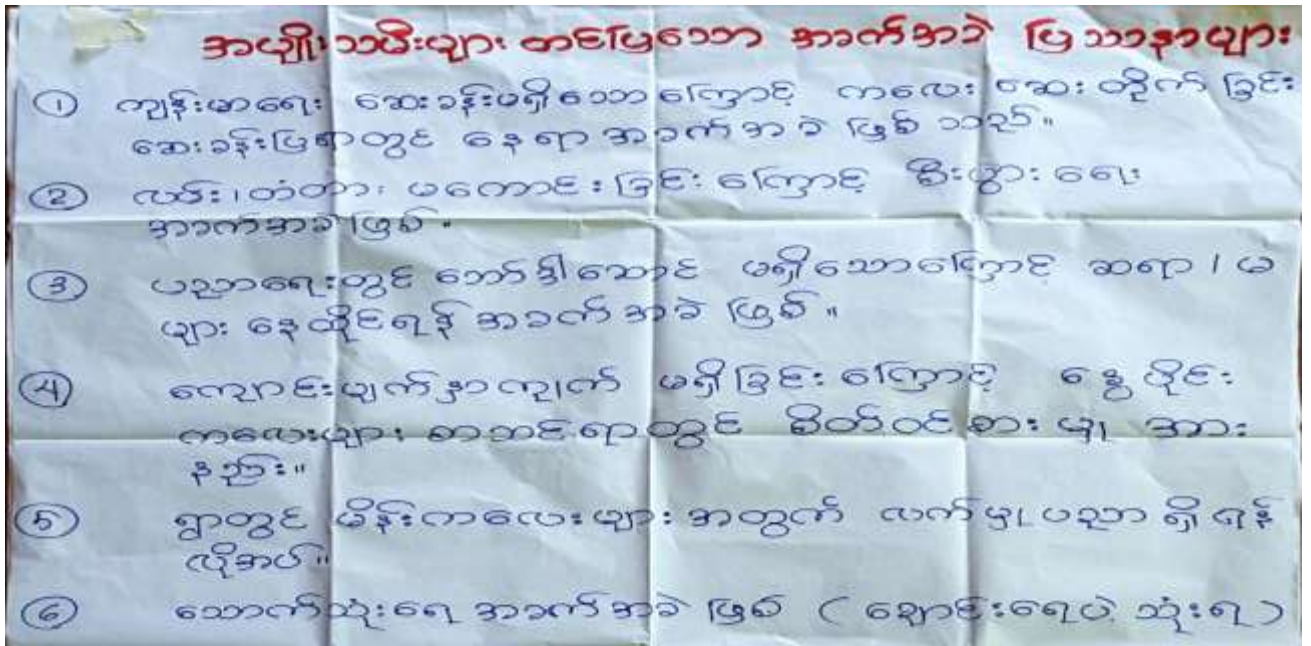 အမျိုးသမီးများ တင်ပြသော အခက်အခဲ ပြဿနာများ
① ကျန်းမာရေး ဆေးခန်းမရှိသောကြောင့် ကလေး ဆေး တိုက် ခြင်း
ဆေးခန်းပြရာတွင် နေရာ အခက်အခဲ ဖြစ် သည်။
② လမ်း၊ တံတား မကောင်းခြင်းကြောင့် စီးပွားရေး
အခက်အခဲဖြစ်။
③ ပညာရေးတွင် ဘော်ဒါဆောင် မရှိသောကြောင့် ဆရာ/မ
များ နေထိုင်ရန် အခက်အခဲ ဖြစ်။
④ ကျောင်းမျက်နှာကျက် မရှိခြင်းကြောင့် နွေပိုင်း
ကလေးများ စာသင်ရာတွင် စိတ်ဝင်စားမှု အား
နည်း။
⑤ ရွာတွင် မိန်းကလေးများအတွက် လက်မှုပညာ ရှိရန်
လိုအပ်။
⑥ သောက်သုံးရေ အခက်အခဲ ဖြစ် (ချောင်းရေပဲ သုံးရ)